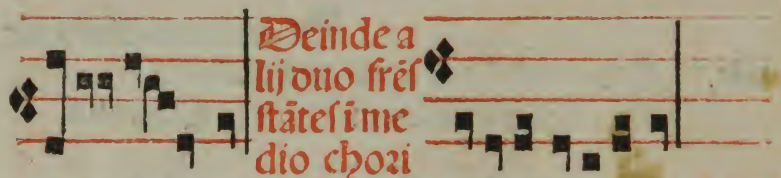 Deinde a
lij duo frēſ
ſtāteſ ī me
dio chori